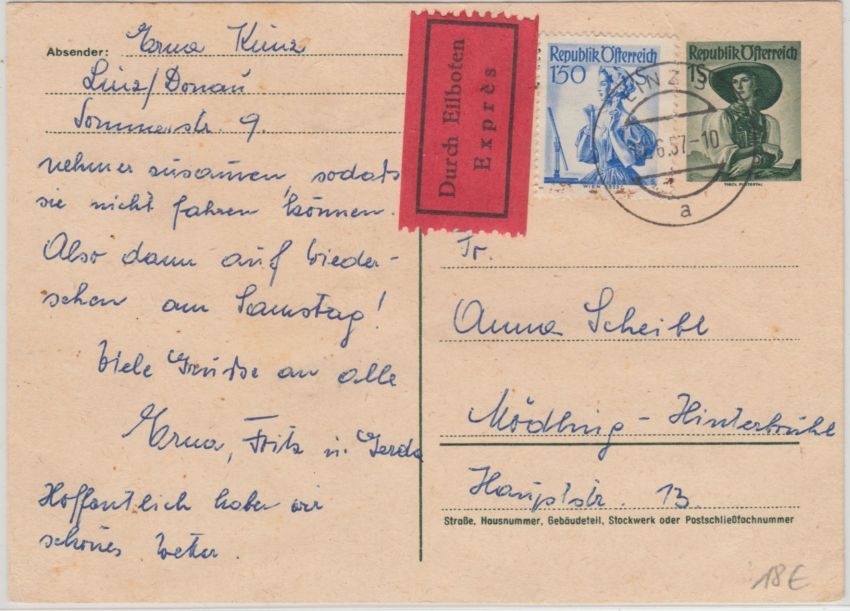 Absender: Erna Kunz
Linz/Donau
Sommerstr. 9.
nehmer zusammen, sodaß
sie nicht fahren können.
Also dann auf Wieder-
sehen am Samstag!
Viele Grüße an alle
Erna, Fritz u. Gerda
Hoffentlich haben wir
schönes Wetter.
Durch Eilboten
Exprès
Republik Österreich
1'50 S
WIEN
Republik Österreich
1S
TIROL, PUSTERTAL
LINZ
6.57-10
a
Fr.
Anna Scheibl
Mödling - Hinterbrühl
Hauptstr. 13.
Straße, Hausnummer, Gebäudeteil, Stockwerk oder Postschließfachnummer
18€